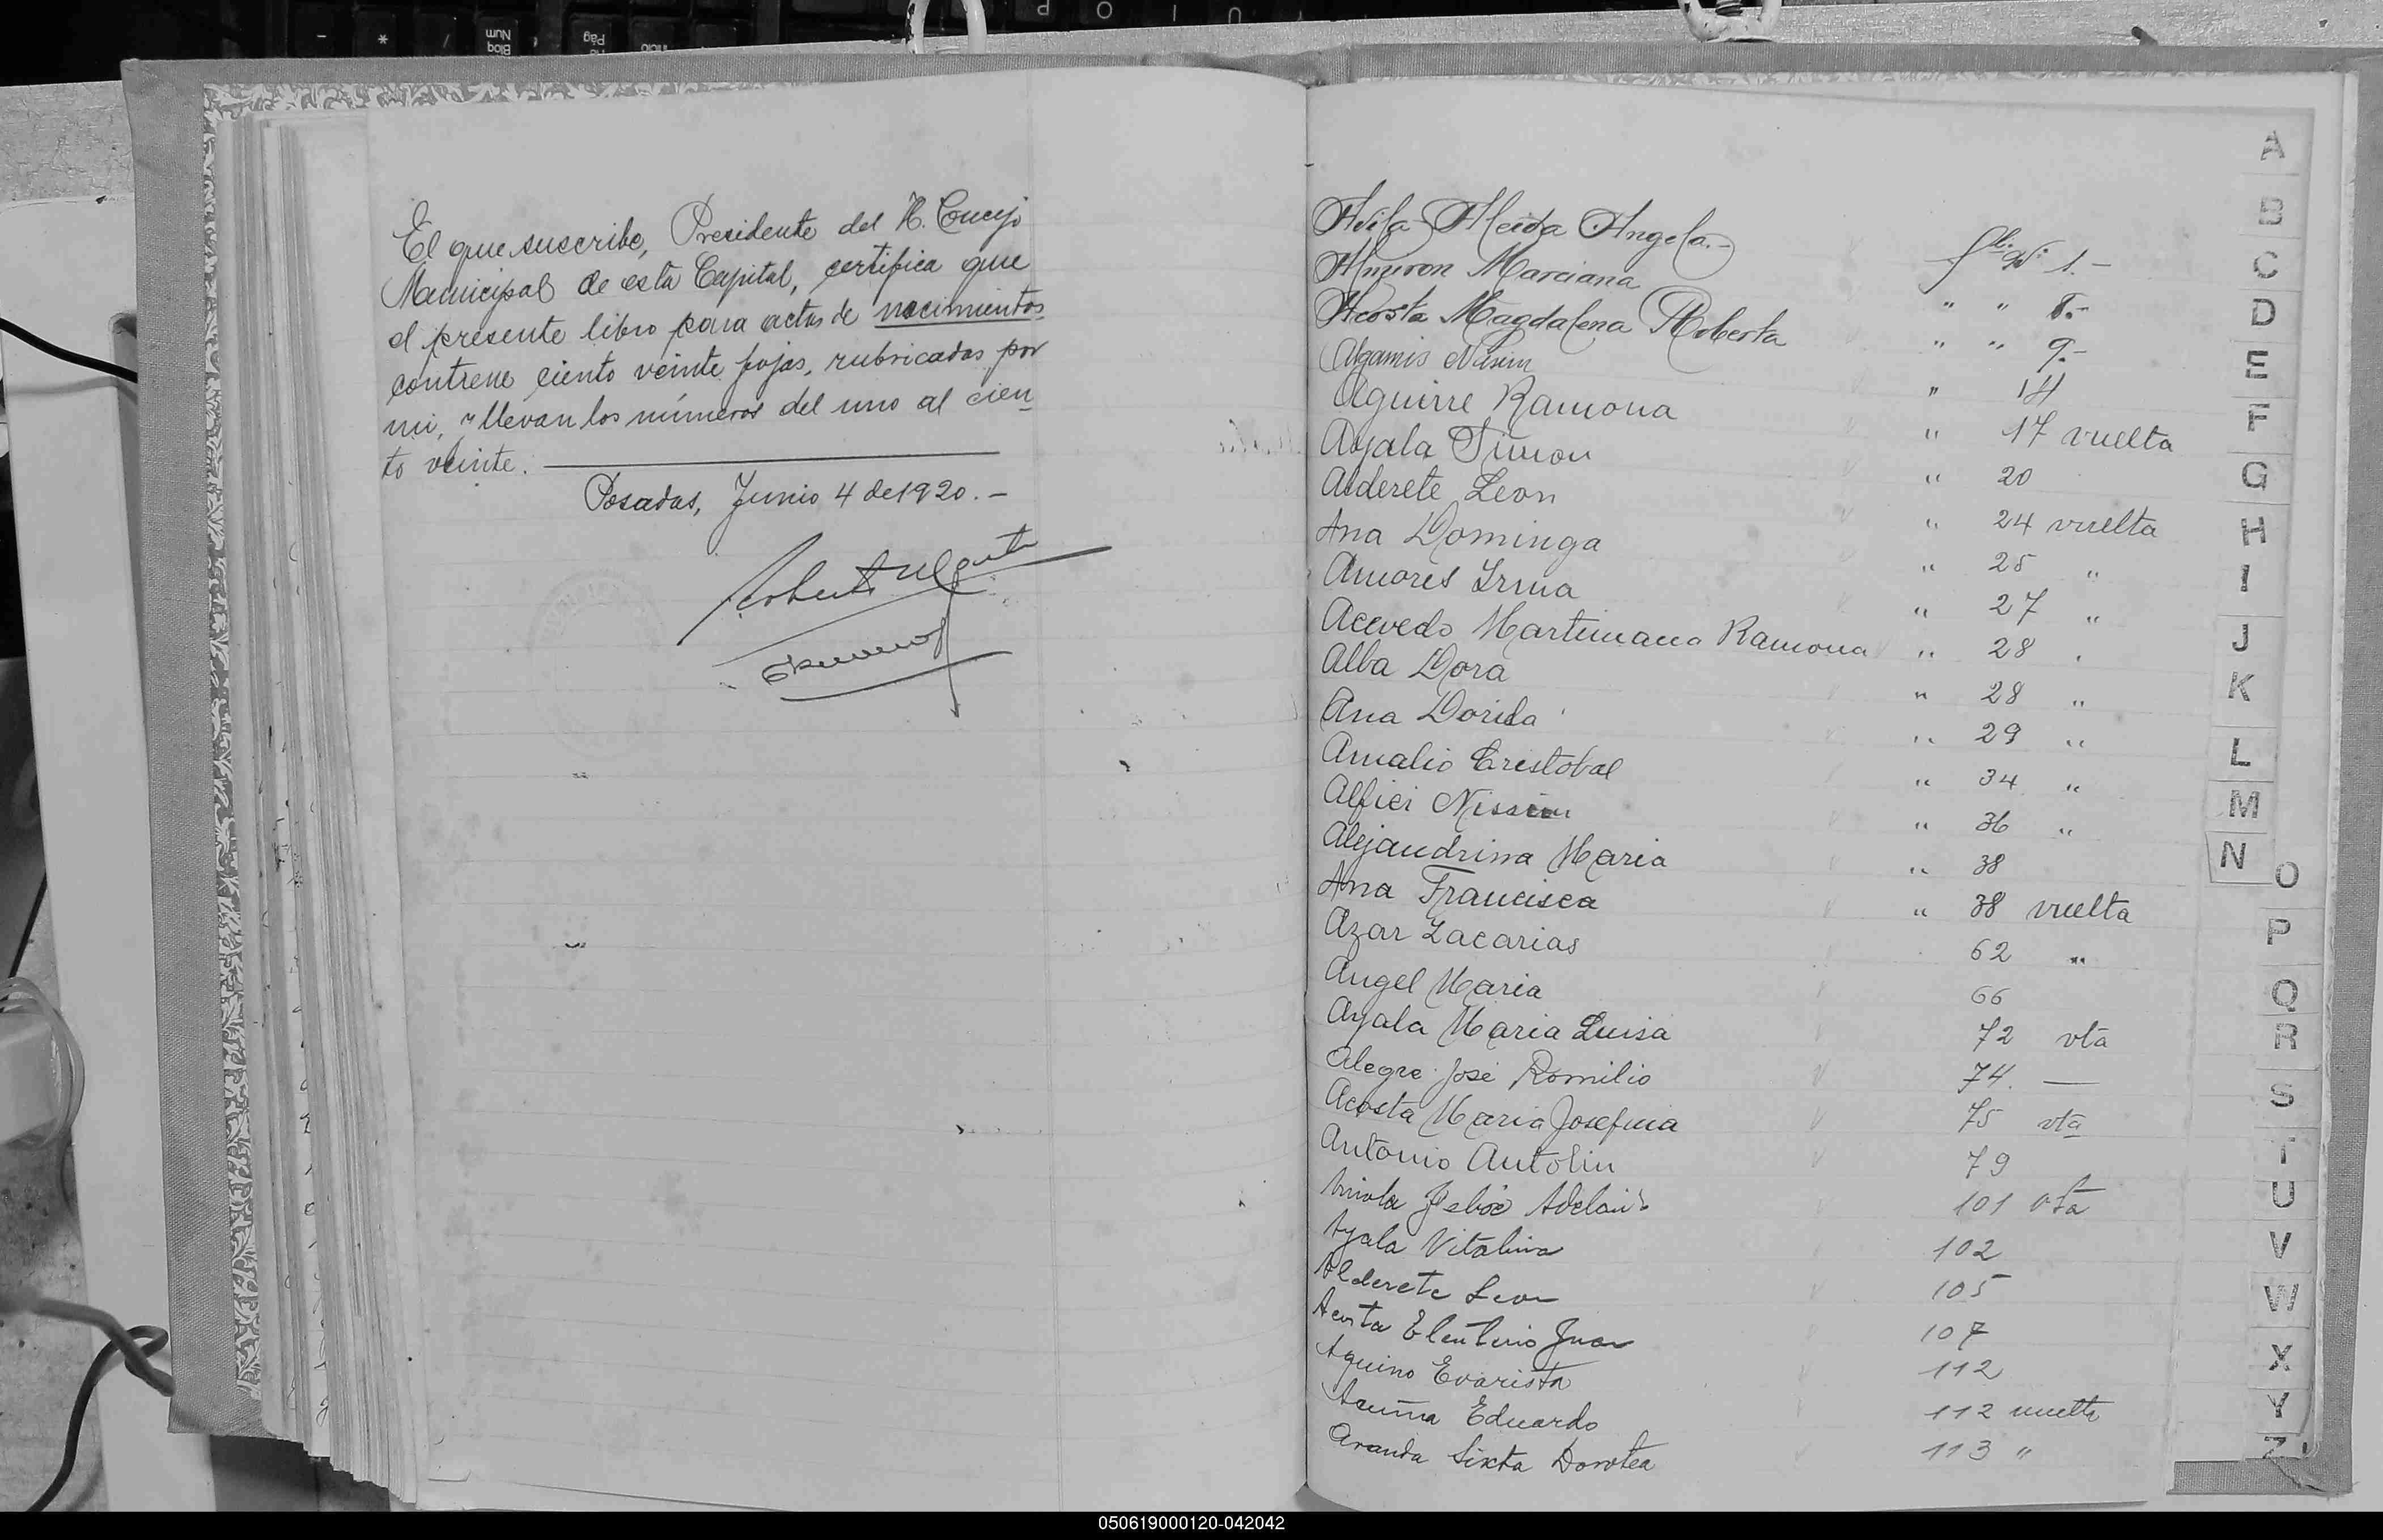 El que suscribe, Presidente del H. Concejo
Municipal de esta Capital, certifica que
el presente libro para actas de nacimientos
contiene ciento veinte fojas, rubricadas por
mi, y llevan los números del uno al cien
to veinte.
Posadas, Junio 4 de 1920.-
Avila Aleida Angela.- fl. Nº 1.-
Almiron Marciana " " 8.-
Acosta Magdalena Roberta " " 9.-
Algamis Nisim " 14
Aguirre Ramona " 17 vuelta
Ayala Simon " 20
Alderete Leon " 24 vuelta
Ana Dominga " 25 "
Amores Irma " 27 "
Acevedo Martimiana Ramona " 28 "
Alba Dora " 28 "
Ana Dorila " 29 "
Amalio Cristobal " 34 "
Alfici Nissim " 36 "
Alejandrina Maria " 38
Ana Francisca " 38 vuelta
Azar Zacarias 62 "
Angel Maria 66
Ayala Maria Luisa 72 vta
Alegre José Romilio 74. —
Acosta Maria Josefina 75 vta
Antonio Antolin 79
101 vta
Ayala Vitalina 102
Alderete Leon 105
Acosta Eleuterio Juan 107
Aquino Evarista 112
Acuña Eduardo 112 vuelta
Aranda Sixta Dorotea 113 "
A
B
C
D
E
F
G
H
I
J
K
L
M
N
O
P
Q
R
S
T
U
V
W
X
Y
Z
050619000120-042042